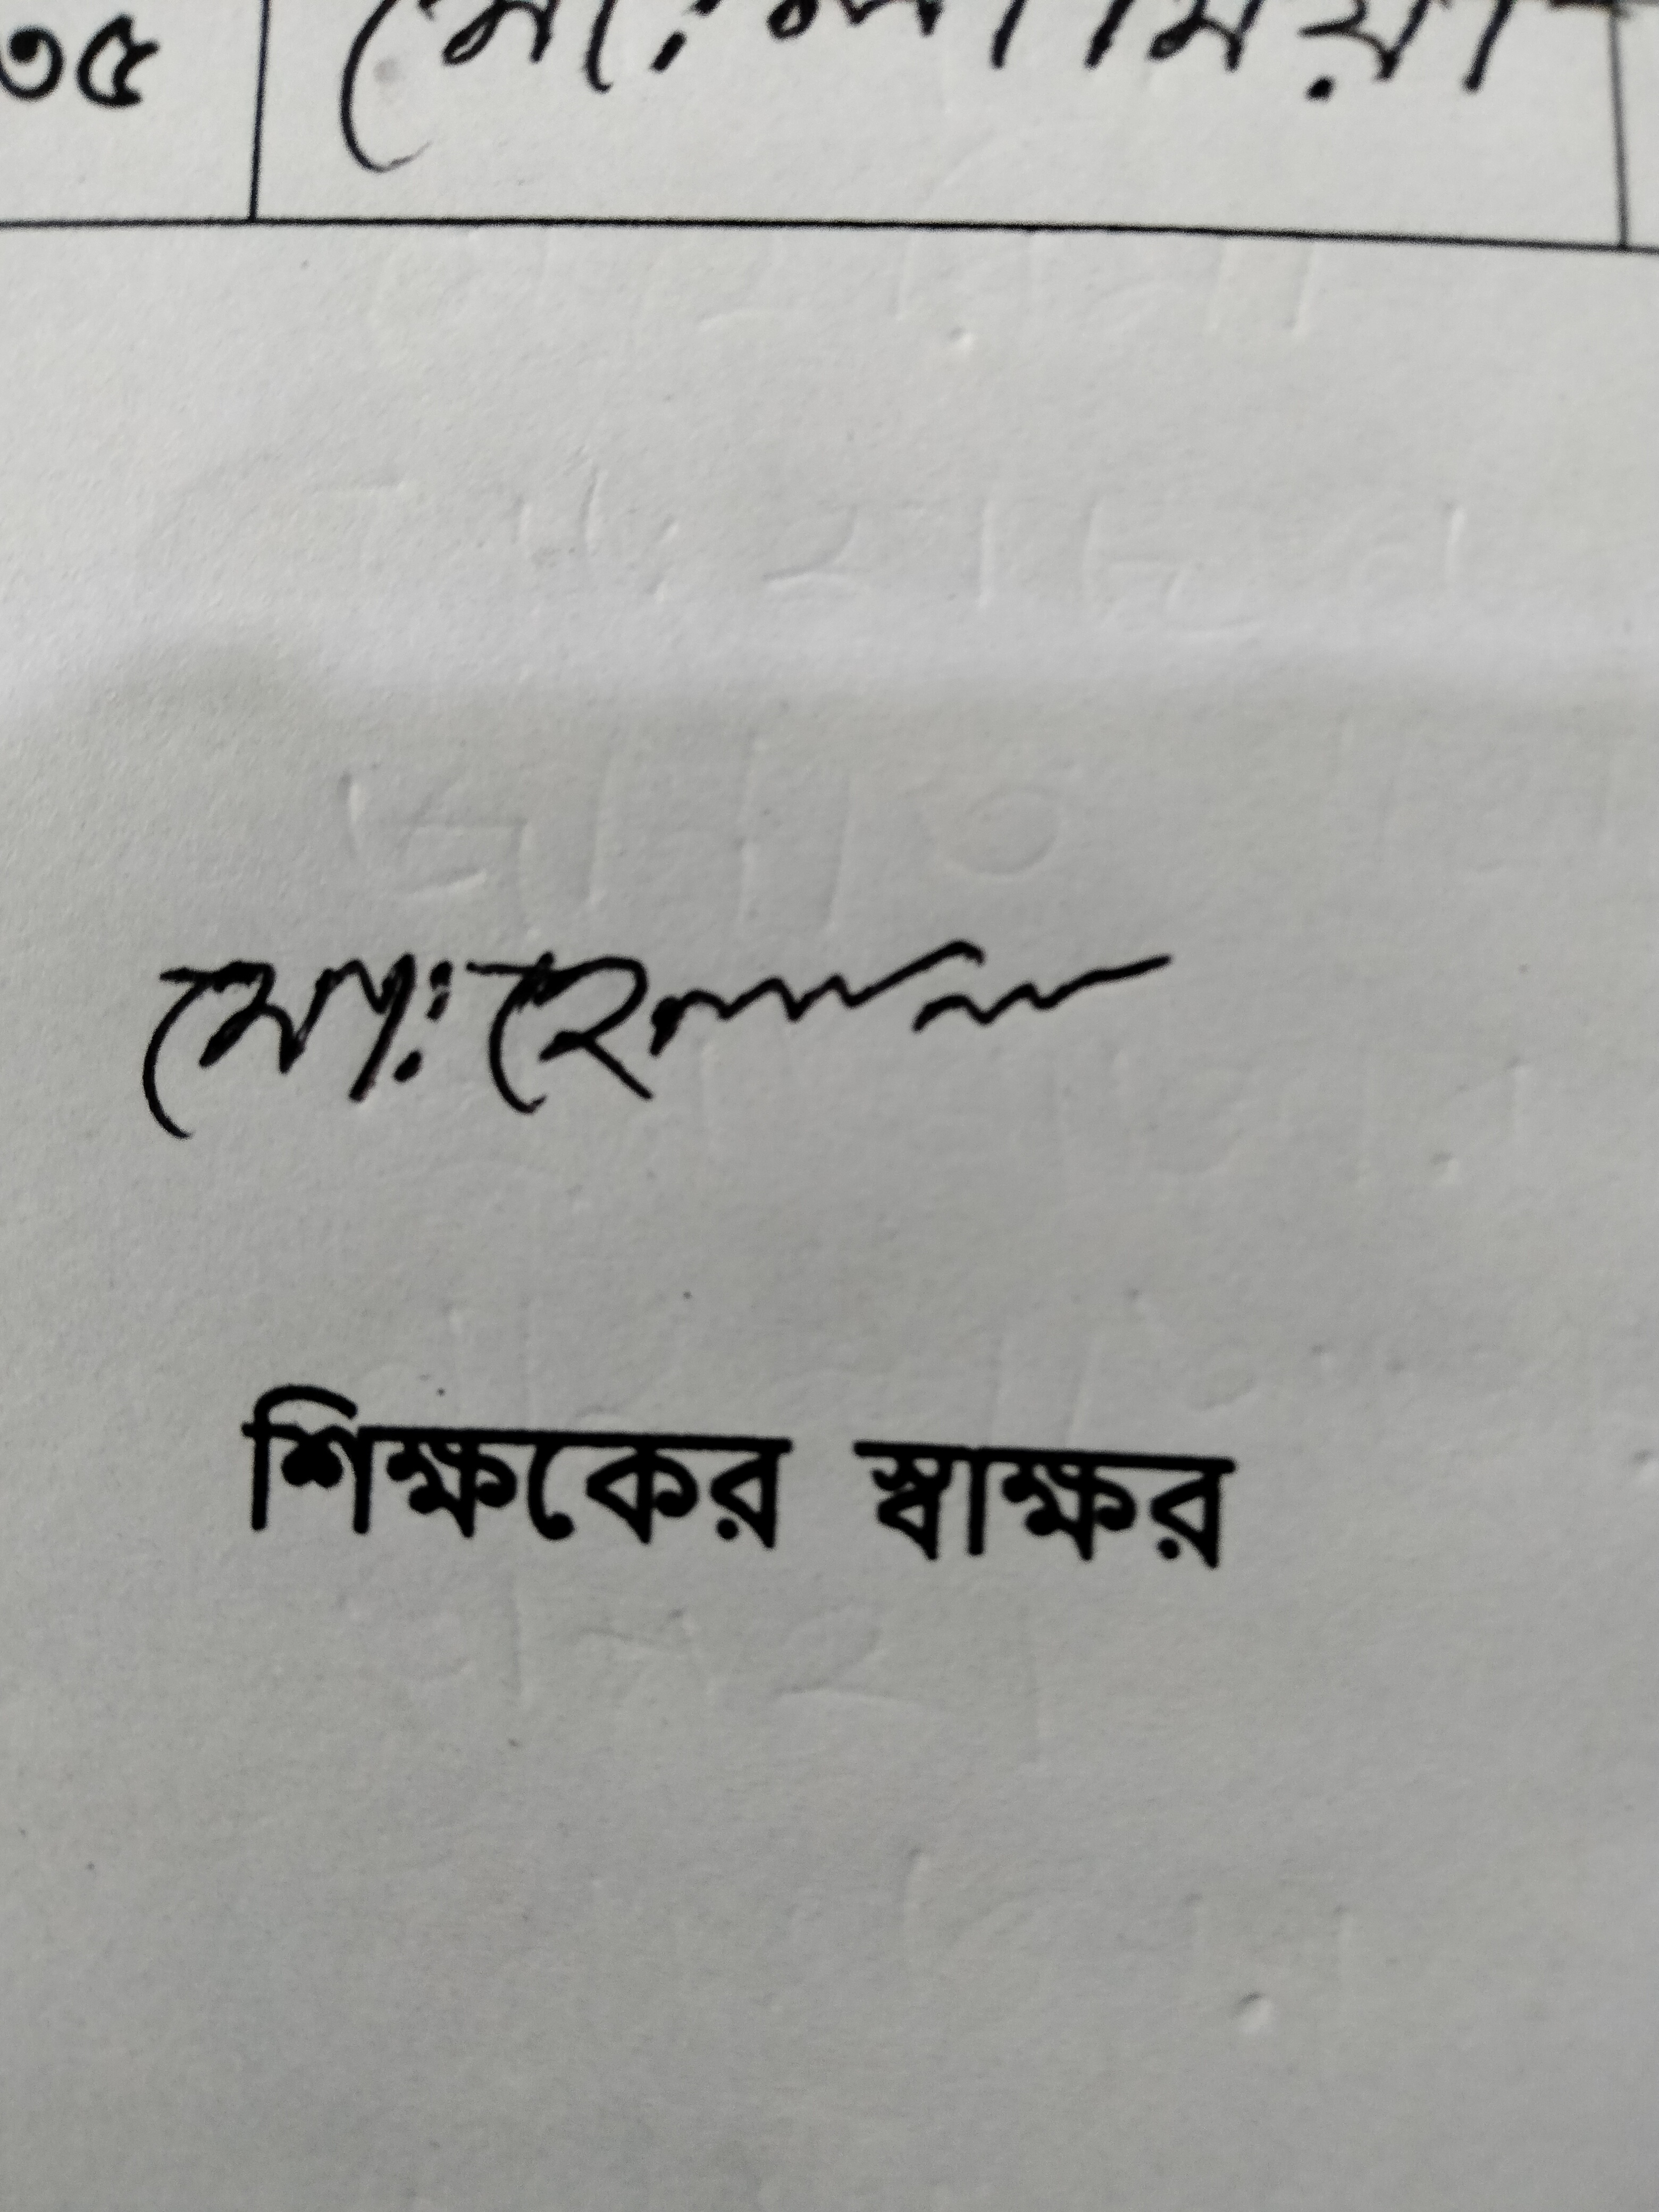 ৩৫ মোঃ মিয়া
মোঃ
শিক্ষকের স্বাক্ষর